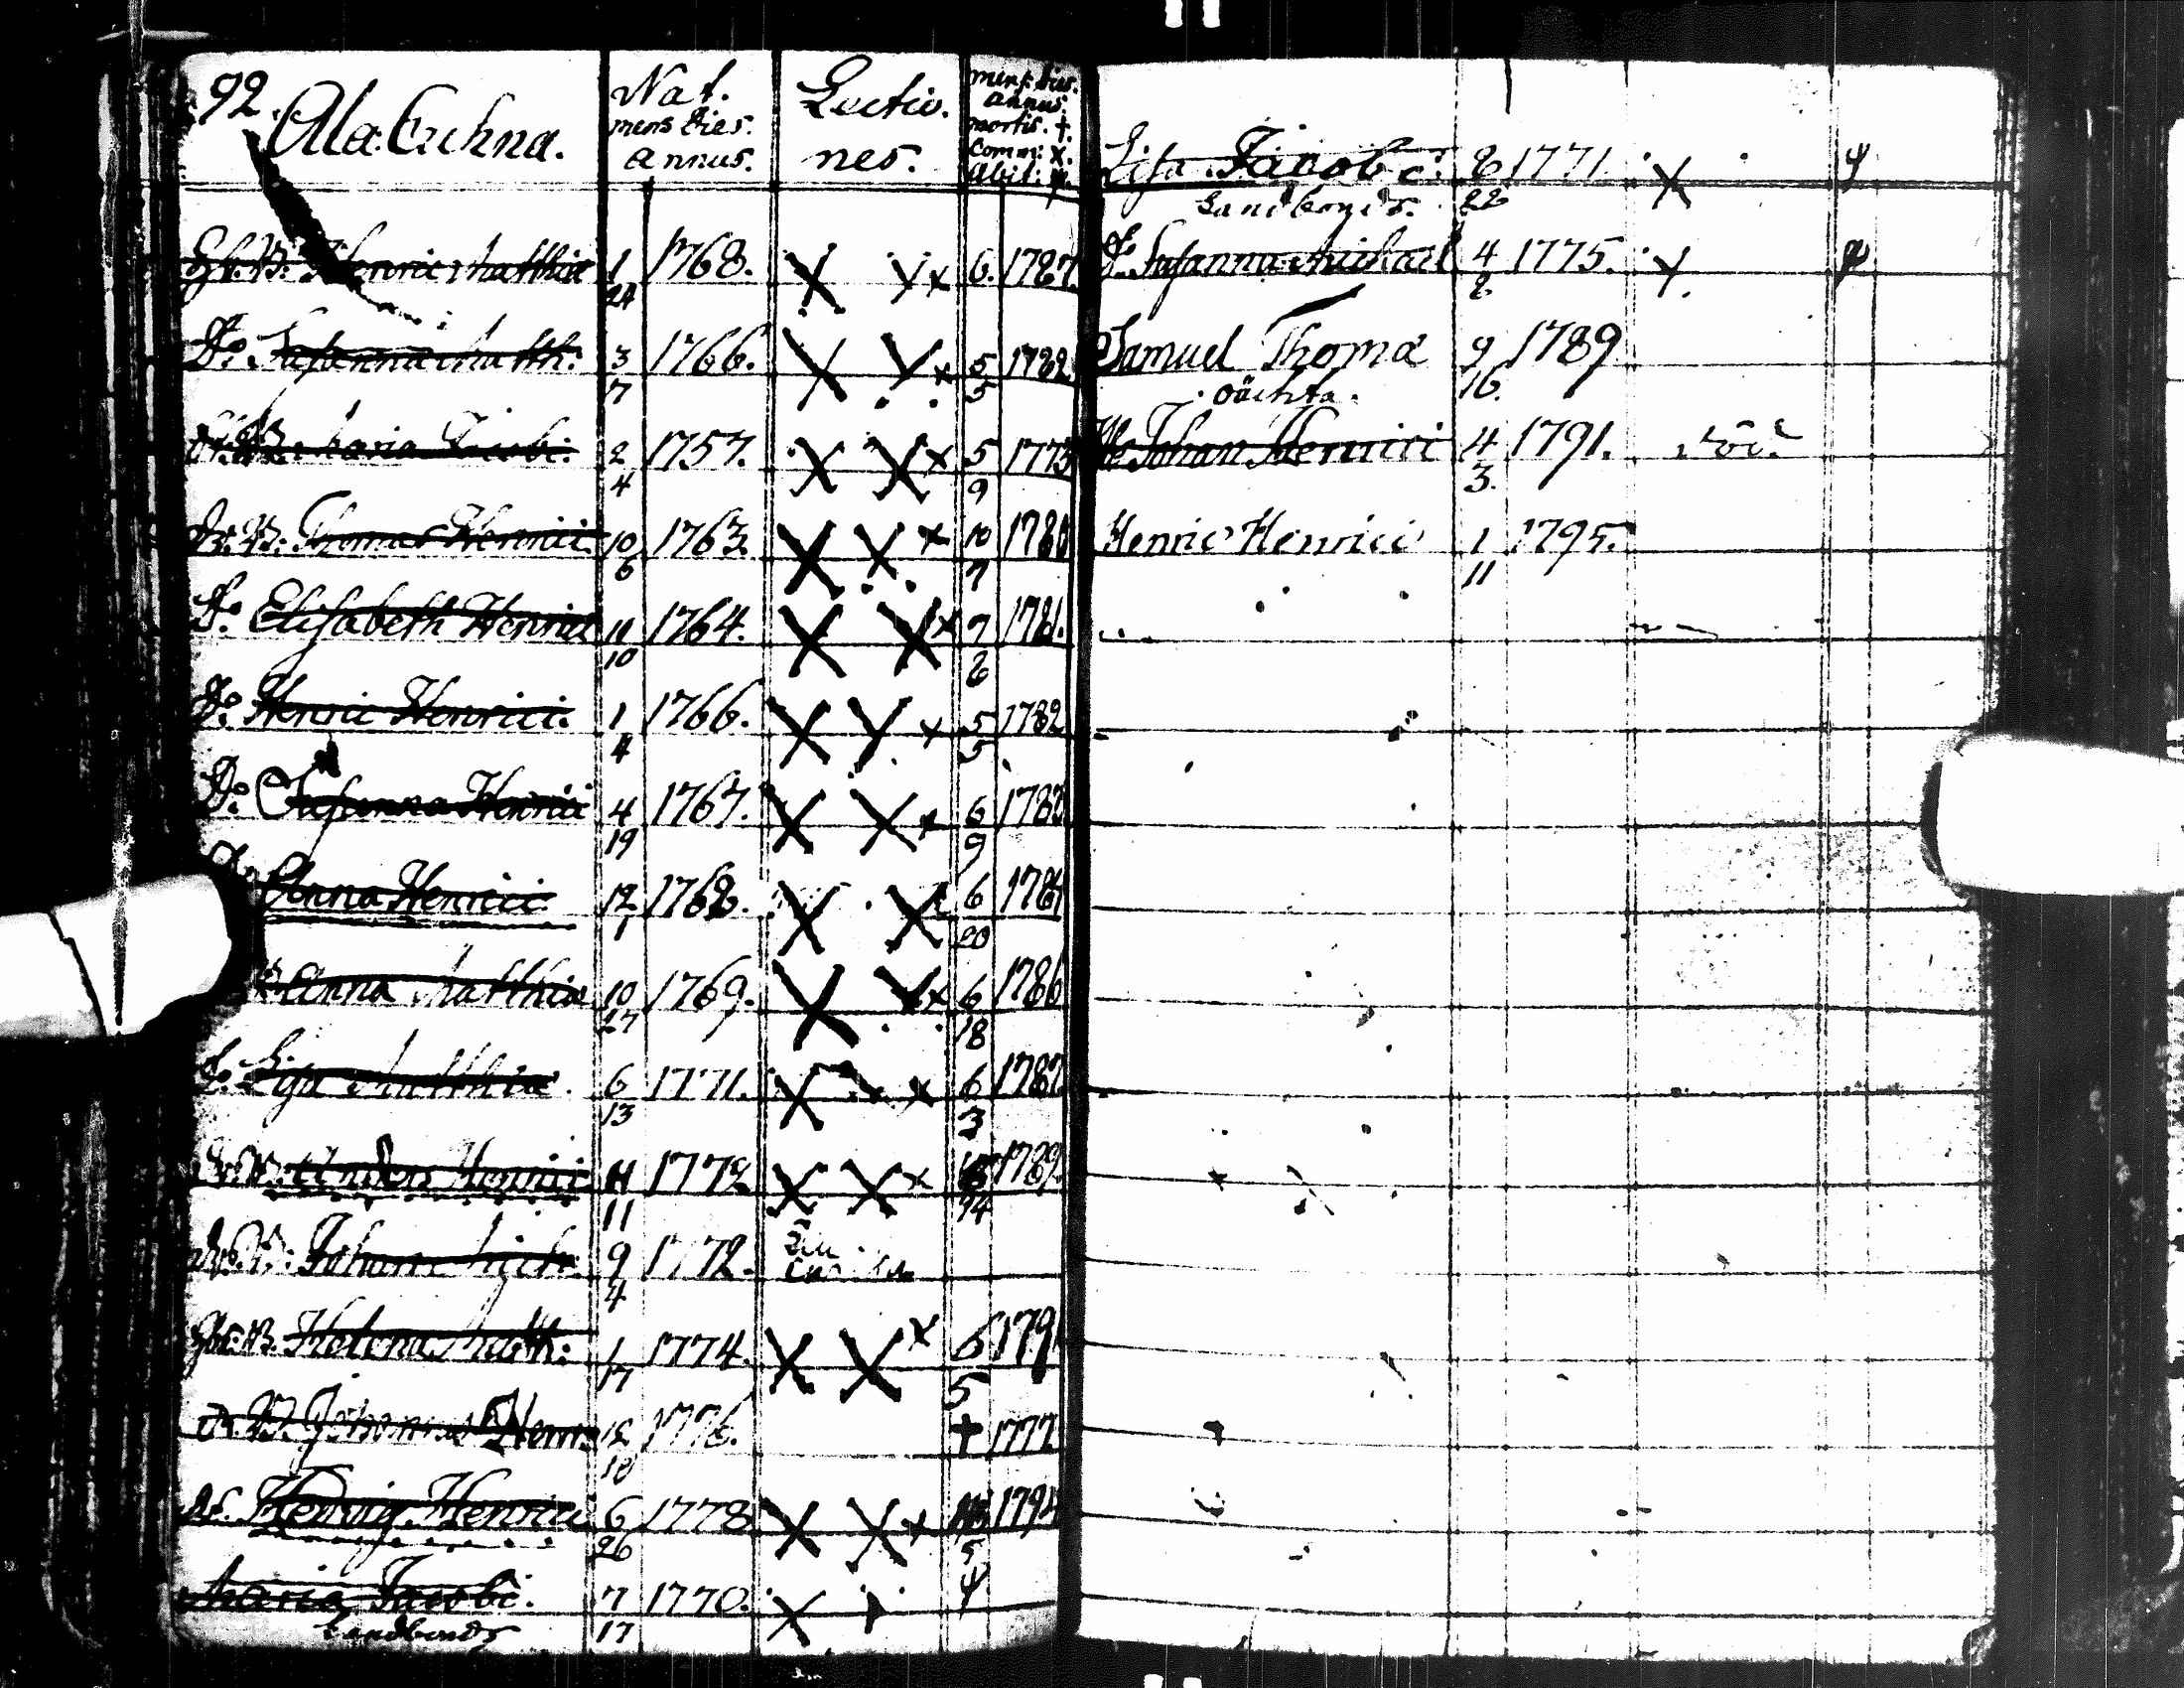 92. Ala Cuhna.
Nat. mens dies. annus.
Lectio. nes.
mens: dies. annus. mortis. †. Comm: X. Abit: ψ.
Henric Matthiæ 1 24 1768. X X x 6. 1787.
Do. Susanna Matth: 3 7 1766. X X x 5 5 1782
Maria Jacobi. 2 4 1757. X X x 5 9 1773
Thomas Henrici. 10 6 1763. X X x 10 7 1780
Do. Elisabeth Henrici 11 10 1764. X X x 7 8 1781.
Do. Henric Henrici. 1 4 1766. X X x 5 5 1782
Do. Susanna Henrici 4 19 1767. X X x 6 9 1783
Anna Henrici 12 1 1768. X X 6 20 1784
Anna Matthiæ 10 27 1769. X X x 6 18 1786
Lisa Matthiæ. 6 13 1771. X x 6 3 1787
Anders Henrici 11 11 1772 X X x 24 1789.
Johan Mich. 9 4 1772.
Helena Matth: 1 17 1774. X X x 6 5 1791
Johannes Henr. 12 18 1776. † 1777.
Hedvig Henrici 6 26 1778. X X x 5 1794
Maria Jacobi. 7 17 1770. X ψ
Landbonds
Lisa Jacobi. 8 22 1771. X ψ
Landbonds.
Do. Susanna Michael 4 8 1775. X ψ
Samuel Thomæ 9 16. 1789
oächta.
Johan Henrici 4 3. 1791.
Henric Henrici 1 11 1795.